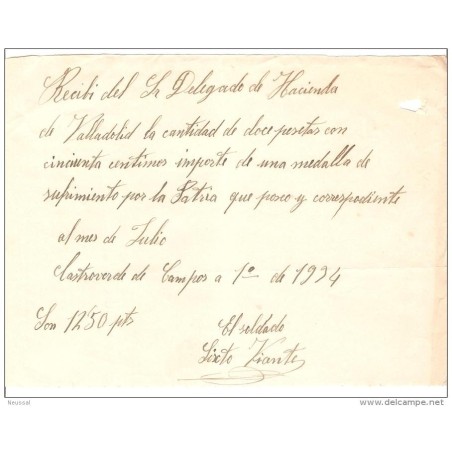 Recibi del Sr Delegado de Hacienda
de Valladolid la cantidad de doce pesetas con
cincuenta centimos importe de una medalla de
sufrimiento por la Patria que poseo y correspediente
al mes de Julio
Castroverde de Campos a 1º de 1934
Son 12'50 pts
El soldado
Sixto
Neussal
delcampe.net